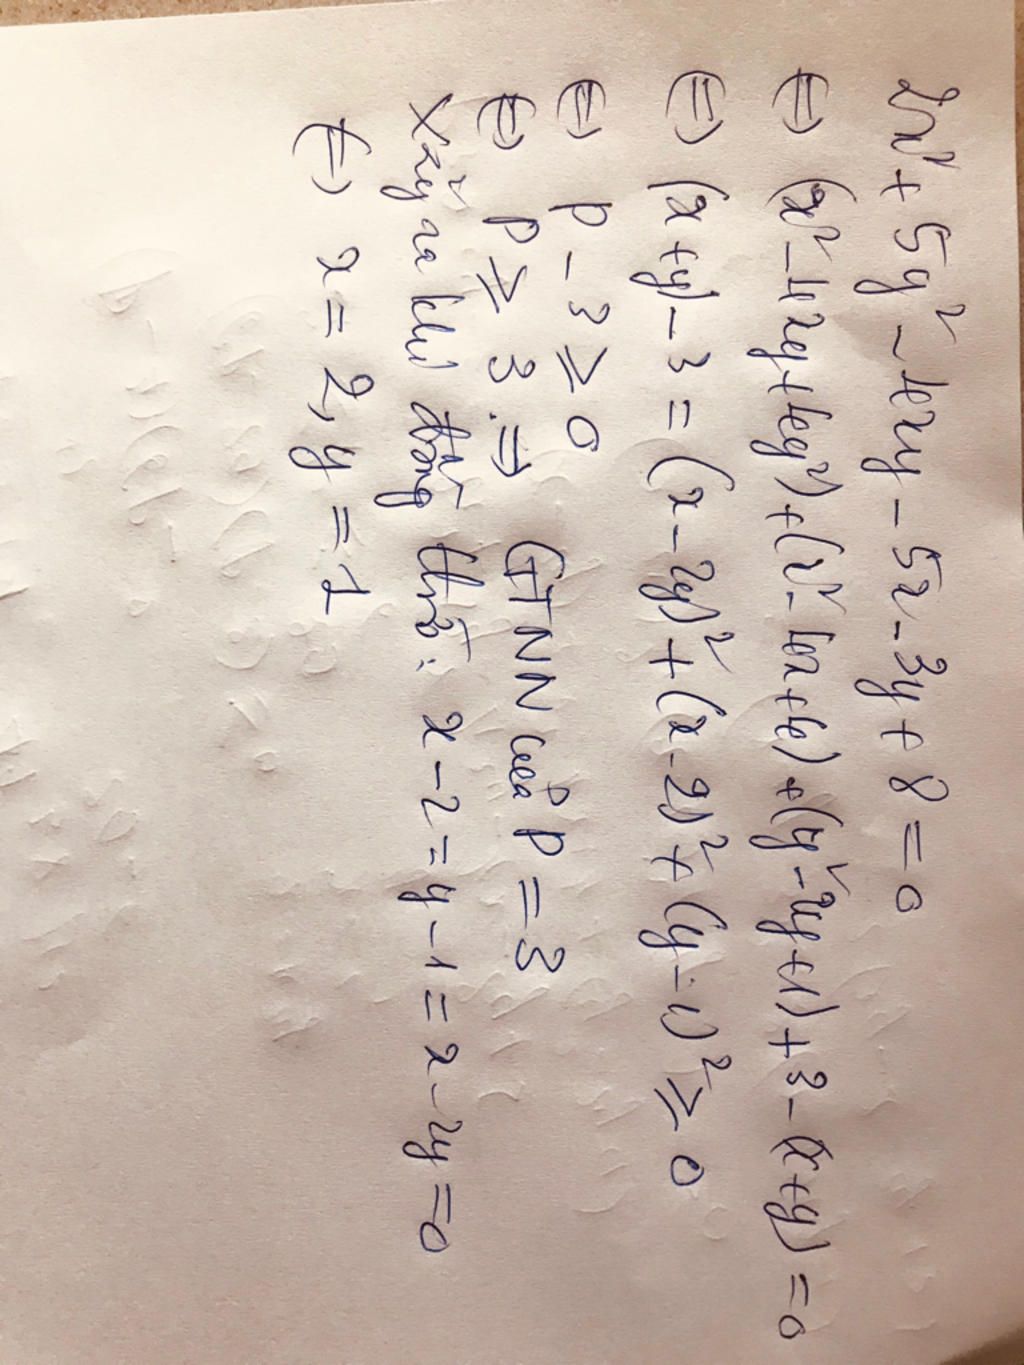 2x² + 5y² - 4xy - 5x - 3y + 8 = 0
(=) (x² - 4xy + 4y²) + (x² - 4x + 4) + (y² - 2y + 1) + 3 - (x + y) = 0
(=) (x + y) - 3 = (x - 2y)² + (x - 2)² + (y - 1)² ≥ 0
(=) P - 3 ≥ 0
(=) P ≥ 3. => GTNN của P = 3
Xảy ra khi đồng thời: x - 2 = y - 1 = x - 2y = 0
(=) x = 2, y = 1